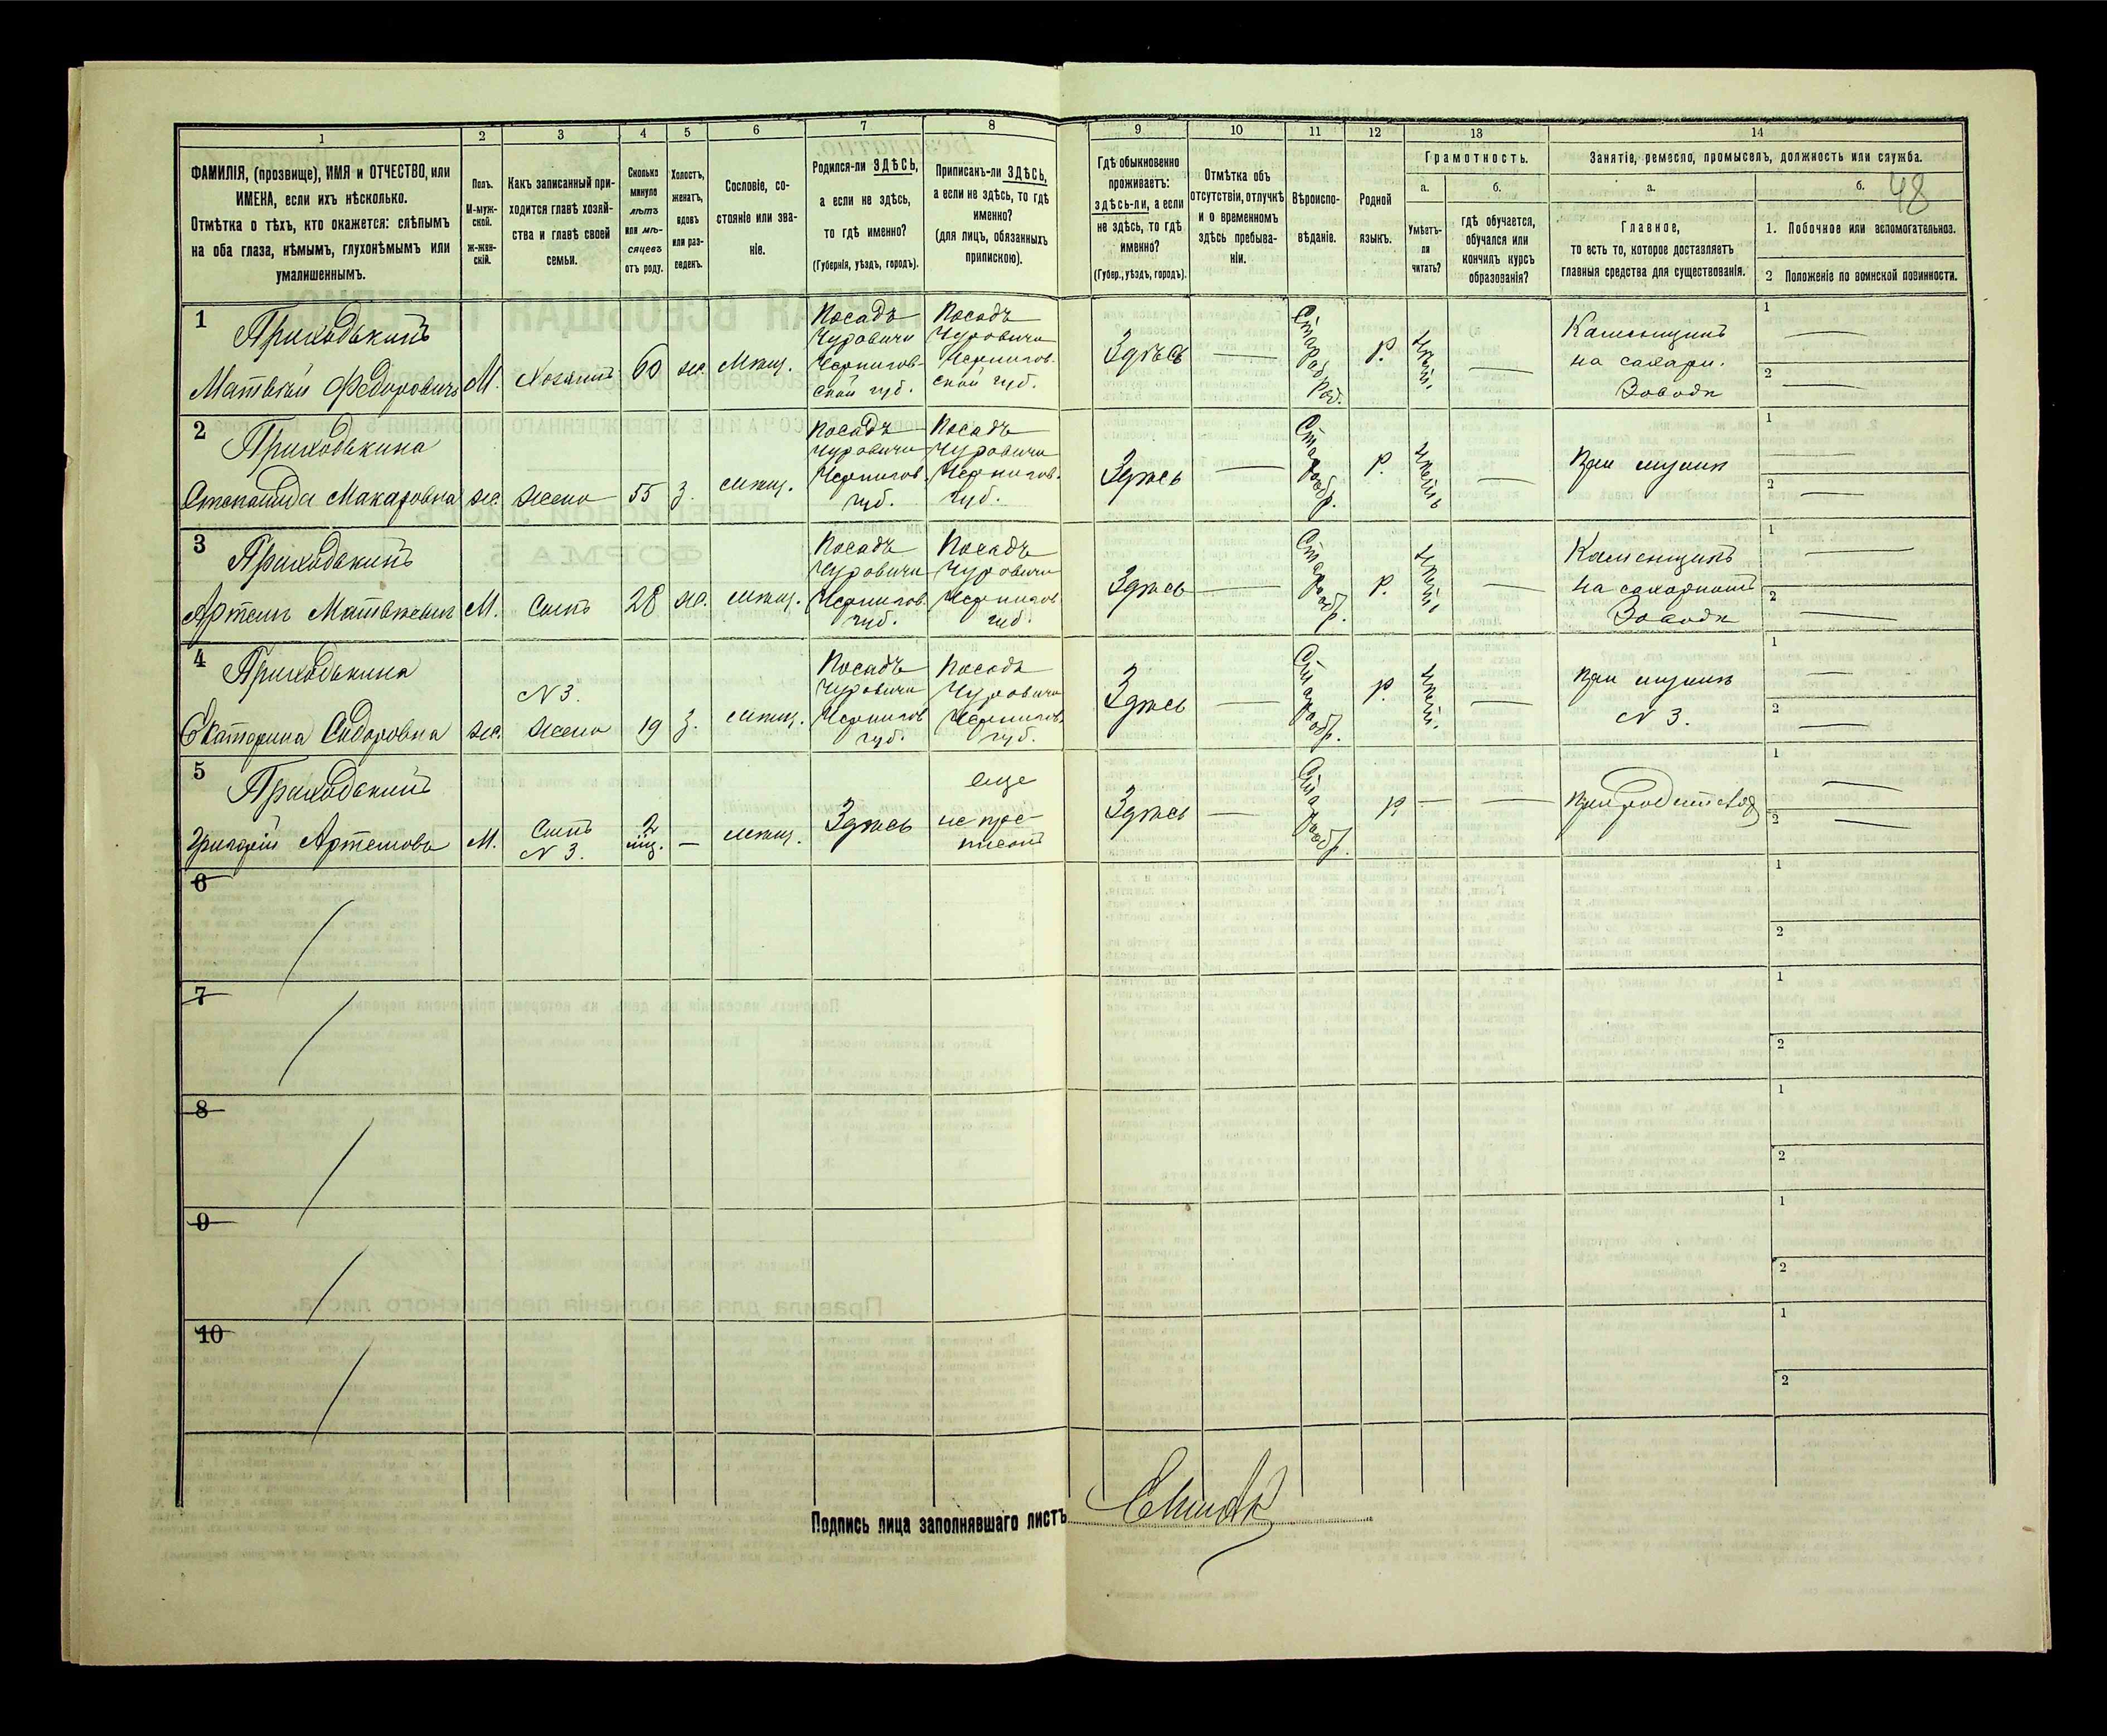 1 2 3 4 5 6 7 8 9 10 11 12 13 14
48
ФАМИЛІЯ, (прозвище), ИМЯ и ОТЧЕСТВО, или
ИМЕНА, если ихъ нѣсколько.
Отмѣтка о тѣхъ, кто окажется: слѣпымъ
на оба глаза, нѣмымъ, глухонѣмымъ или
умалишеннымъ.
Полъ.
М-муж-
ской.
ж-жен-
скій.
Какъ записанный при-
ходится главѣ хозяй-
ства и главѣ своей
семьи.
Сколько
минуло
лѣтъ
или мѣ-
сяцевъ
отъ роду.
Холостъ,
женатъ,
вдовъ
или раз-
веденъ.
Сословіе, со-
стояніе или зва-
ніе.
Родился-ли ЗДѢСЬ,
а если не здѣсь,
то гдѣ именно?
(Губернія, уѣздъ, городъ).
Приписанъ-ли ЗДѢСЬ,
а если не здѣсь, то гдѣ
именно?
(для лицъ, обязанныхъ
припискою).
Гдѣ обыкновенно
проживаетъ:
здѣсь-ли, а если
не здѣсь, то гдѣ
именно?
(Губер., уѣздъ, городъ).
Отмѣтка объ
отсутствіи, отлучкѣ
и о временномъ
здѣсь пребыва-
ніи.
Вѣроиспо-
вѣданіе.
Родной
языкъ.
Грамотность.
а.
Умѣетъ-
ли
читать?
б.
гдѣ обучается,
обучался или
кончилъ курсъ
образованія?
Занятіе, ремесло, промыселъ, должность или служба.
а.
Главное,
то есть то, которое доставляетъ
главныя средства для существованія.
б.
1. Побочное или вспомогательное.
2 Положеніе по воинской повинности.
1
Приходькинъ
Матвѣй Федоровичъ
М.
Хозяинъ
60
же.
Мѣщ.
Посадъ
Чуровичи
Чернигов-
ской губ.
Посадъ
Чуровичи
Чернигов-
ской губ.
Здѣсь
—
р.
—
Каменщикъ
на сахарн.
Заводѣ
1 —
2 —
2
Приходькина
Степанида Макаровна
же.
жена
55
з.
мѣщ.
Посадъ
Чуровичи
Чернигов.
губ.
Посадъ
Чуровичи
Чернигов.
губ.
Здѣсь
—
Старообр.
р.
—
при мужѣ
1 —
2 —
3
Приходькинъ
Артемъ Матвѣевич
М.
Сынъ
28
же.
мѣщ.
Посадъ
Чуровичи
Чернигов.
губ.
Посадъ
Чуровичи
Чернигов
губ.
Здѣсь
—
Старообр.
р.
—
Каменщикъ
на сахарномъ
Заводѣ
1 —
2 —
4
Приходькина
Екатерина Сидоровна
же.
N 3.
жена
19
з.
мѣщ.
Посадъ
Чуровичи
Чернигов
губ.
Посадъ
Чуровичи
Чернигов.
губ.
Здѣсь
—
Старообр.
р.
—
при мужѣ
N 3.
1 —
2 —
5
Приходькинъ
Григорій Артемовъ
М.
Сынъ
N 3.
2
мѣщ.
Здѣсь
еще
не при-
писанъ
Здѣсь
—
Старообр.
р
—
—
1 —
2 —
6
1
2
7
1
2
8
1
2
9
1
2
10
1
2
Подпись лица заполнявшаго листъ